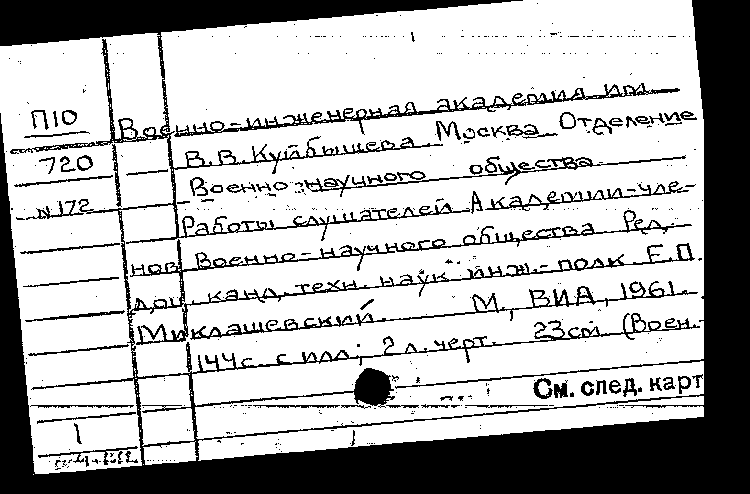 П10
720
N172
Военно-инженерная академия им
В.В.Куйбышева Москва Отделение
Военно-научного общества
Работы слушателей Академии-чле-
нов Военно-научного общества Ред.
доц. канд. техн. наук инж.-полк Е.П.
Миклашевский. М., ВИА, 1961.
144с. с илл; 2л. черт. 23см (Воен.-
См. след. карт
1